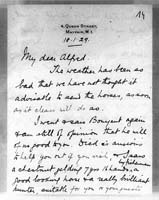 14
4, QUEEN STREET,
MAYFAIR, W.1.
18.1.29.
My dear Alfred.
The weather has been so
bad that we have not thought it
advisable to send the horses, as soon
as it clears will do so.
I went & saw Bonyent again
& am still of opinion that he will
do no good 
 Dead is anxious
to help you out if you wish,
 I saw
a chestnut gelding 7 yrs 16 hands, a
good looking horse & a really brilliant
hunter suitable for you or your guests